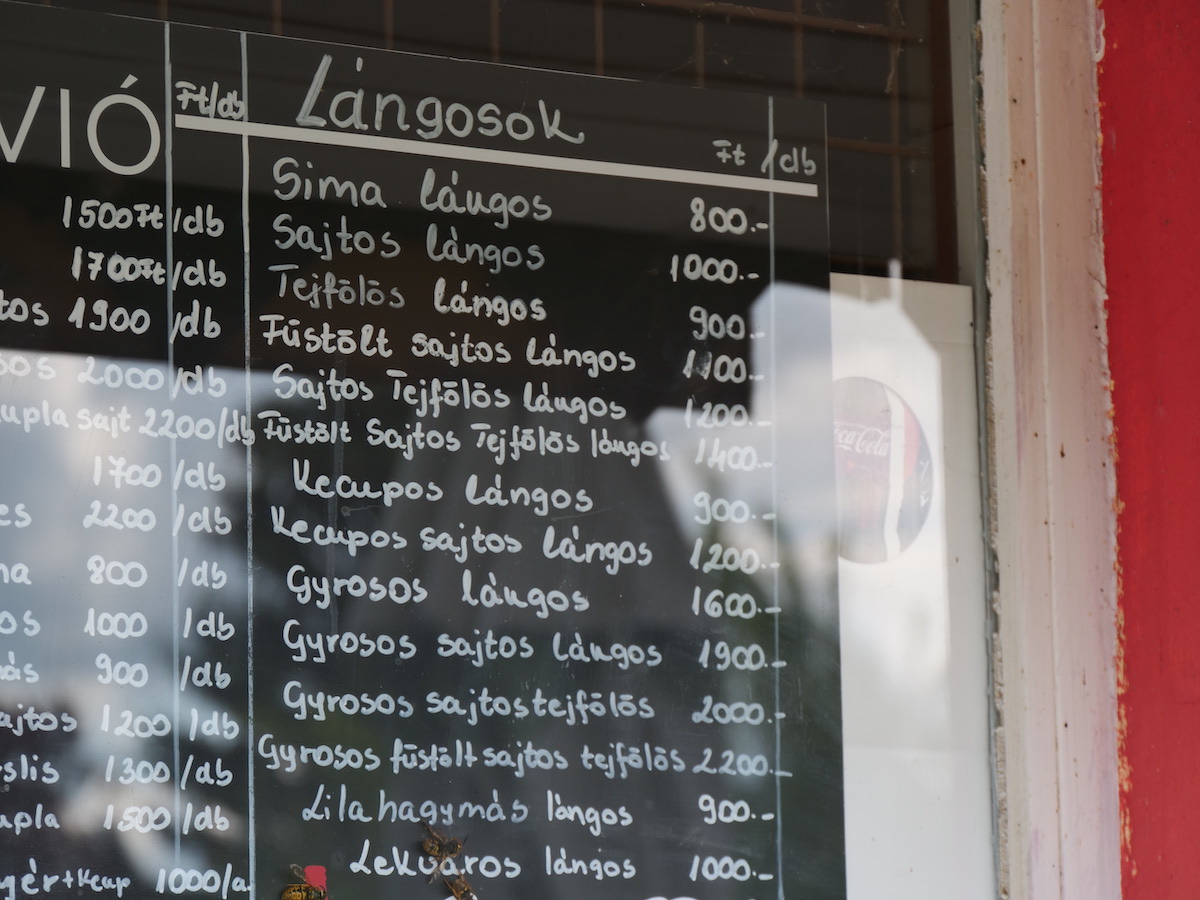 VIÓ
Ft/db
1500Ft/db
1700Ft/db
tos 1900/db
sos 2000/db
upla sajt 2200/db
1700/db
es 2200/db
na 800/db
os 1000/db
más 900/db
ajtos 1200/db
slis 1300/db
upla 1500/db
yér+kcup 1000/a
Lángosok
Ft/db
Sima lángos 800.-
Sajtos lángos 1000.-
Tejfölös lángos 900.-
Füstölt sajtos lángos 1100.-
Sajtos Tejfölös lángos 1200.-
Füstölt Sajtos Tejfölös lángos 1400.-
Kecupos lángos 900.-
Kecupos sajtos lángos 1200.-
Gyrosos lángos 1600.-
Gyrosos sajtos lángos 1900.-
Gyrosos sajtostejfölös 2000.-
Gyrosos füstölt sajtos tejfölös 2200.-
Lilahagymás lángos 900.-
Lekváros lángos 1000.-
Coca-Cola